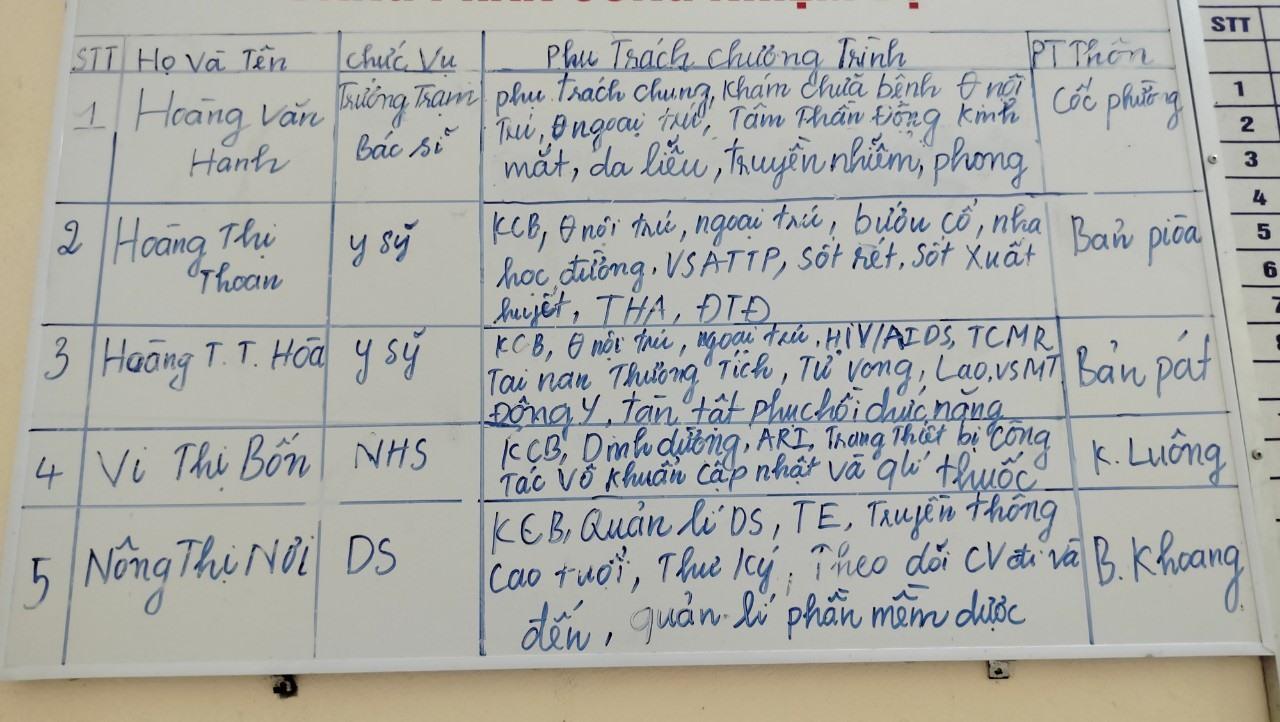 STT Họ Và Tên Chức Vụ Phụ Trách chương Trình PT Thôn
1 Hoàng Văn Hanh Trưởng Trạm Bác sĩ
phụ trách chung, Khám chữa bệnh θ nội
Trú, θ ngoại trú, Tâm Thần Động Kinh
mắt, da liễu, truyền nhiễm, phong
Cốc phường
2 Hoàng Thị Thoan y sỹ
KCB, θ nội trú, ngoại trú, bướu cổ, nha
học đường. VSATTP, Sốt rét, Sốt Xuất
huyết, THA, ĐTĐ
Bản pioa
3 Hoàng T. T. Hòa y sỹ
KCB, θ nội trú, ngoại trú, HIV/AIDS, TCMR
Tai nạn Thương Tích, Tử vong, Lao, VSMT
Đông Y, tàn tật phục hồi chức năng
Bản pát
4 Vi Thị Bốn NHS
KCB, Dinh dưỡng, ARI, Trang Thiết bị Công
Tác Vô Khuẩn Cập nhật và qlí thuốc
K. Luông
5 Nông Thị Nơi DS
KCB, Quản lí DS, TE, Truyền thông
Cao tuổi, Thư Ký, Theo dõi CV đi và
đến, quản lí phần mềm dược
B. Khoang
STT
1
2
3
4
5
6
7